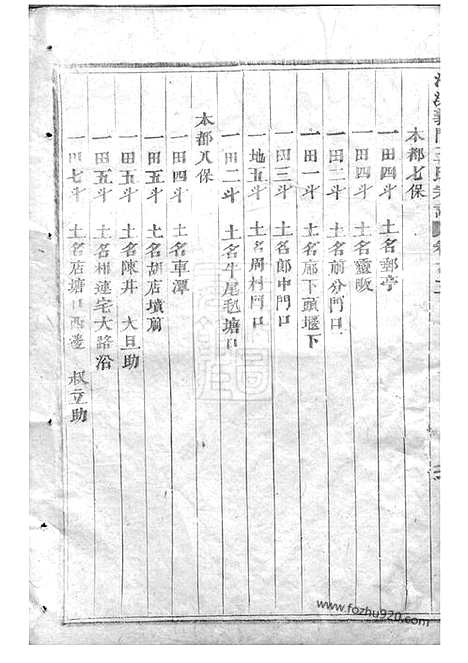 本都七保
一田四斗 土名郵亭
一田四斗 土名靈畈
一田二斗 土名前分門口
一田一斗 土名廊下頭堰下
一田三斗 土名郎中門口
一地五斗 土名周村門口
一田二斗 土名牛尾毛塘口
本都八保
一田四斗 土名車潭
一田五斗 土名胡店墳前
一田五斗 土名陳井 大旦助
一田五斗 土名相連宅大路沿
一田七斗 土名店塘口西邊 叔立助
www.fozhu920.com